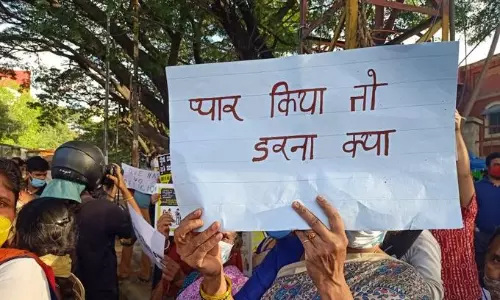 प्यार किया तो
डरना क्या